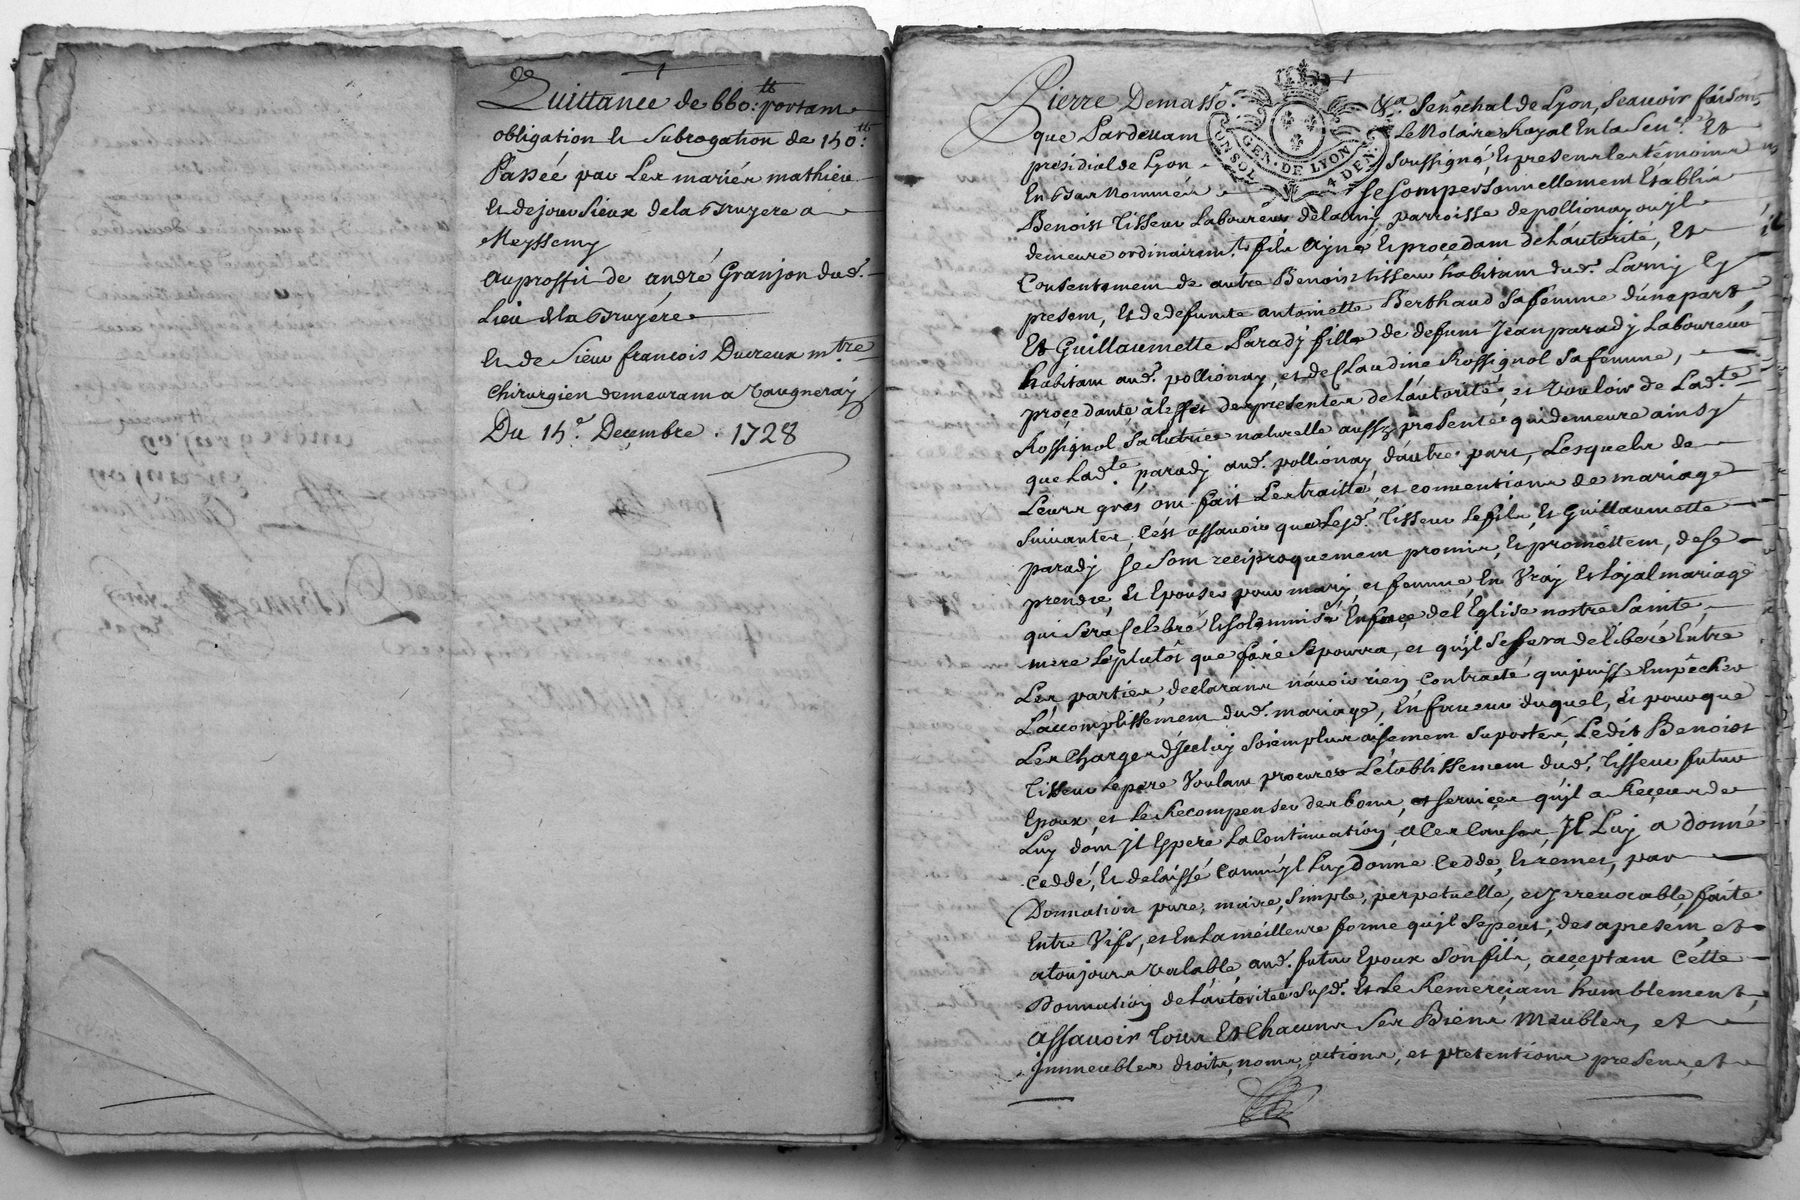 Quittance de 660:tt portam
obligation et Subrogation de 150:tt
Passée par Les mariés mathieu
et dejour Sieux de la Bruyere a
Meyssemy
au proffit de andré Granjon dud.
Lieu de la Bruyére
et de Sieur francois Ducreux mtre
chirurgien demeuram a Vaugneray
Du 15e Decembre . 1728
Pierre Demasso. &a Senechal de Lyon, Scavoir faisons
que Pardevam Le Notaire Royal En la Sen. Et
presidial de Lyon Soussigné, Et presens les témoins
En Bas Nommés Se Som personnellement Etablis
GEN. DE LYON
4 DEN.
Benoist Tisseur Laboureur de larny parroisse de pollionay ou yl
demeure ordinairemt. fils Ayné Et procedam de L'autorité, Et
Consentemem de autre Benoist tisseur habitam dud. Larny Cy
presem, Et de defunte antoinette Berthaud Sa femme d'une part
Et Guillaumette Parady fille de defunt Jean parady Laboureur
habitam aud. pollionay, et de Claudine Rossignol Sa femme,
procedante à l'effet des presentes de L'autorité, et Vouloir de Lad.te
Rossignol Sa tutrice naturelle aussy presente qui demeure ainsy
que Lad.te parady aud. pollionay d'autre part, Lesquels de
Leurs grés om fait Les traitté et conventions de mariage
Suivantes, C'est assavoir que Lesd. Tisseur Le fils Et Guillaumette
parady Se Som reciproquemem promis, Et promettem, de Se
prendre, Et Epouser pour mary, et femme En Vray Et loyal mariage
qui Sera Celebré Et Solemnisé En face de l'Eglise nostre Sainte
mere Le plutôt que faire Se pourra, et qu'yl Sessera délibéré Entre
Les parties, declarans n'avoir rien contracté qui puiss Empêcher
L'accomplissemem dud. mariage, En faveur duquel, Et pour que
Les Charges d'Jceluy Soiem plus aisemem Suportés, Ledit Benoist
Tisseur Le pere Voulam procurer L'établissemem dud. Tisseur futur
Epoux et Le Recompenser des bons, et Services qu'yl a Reçeus de
Luy dom Jl Espere La Continuation, a Ces Causes, Jl Luy a donné
Ceddé, Et delaissé Comm'yl Luy donne Cedde, Et remet, par
Donnation pure, mairé, Simple, perpetuelle, et Jrrevocable, faite
Entre Vifs, et En La méilleure forme qu'yl Se peut, des a presem, et
a toujours Valable, aud. futur Epoux Son fils, acceptam Cette
Donnation de L'autorité Susd. Et Le Remerciam humblement,
assavoir Tous Et Chacuns Ses Biens Meubles, et
Jmmeubles droits, noms, actions, et pretentions presens, et